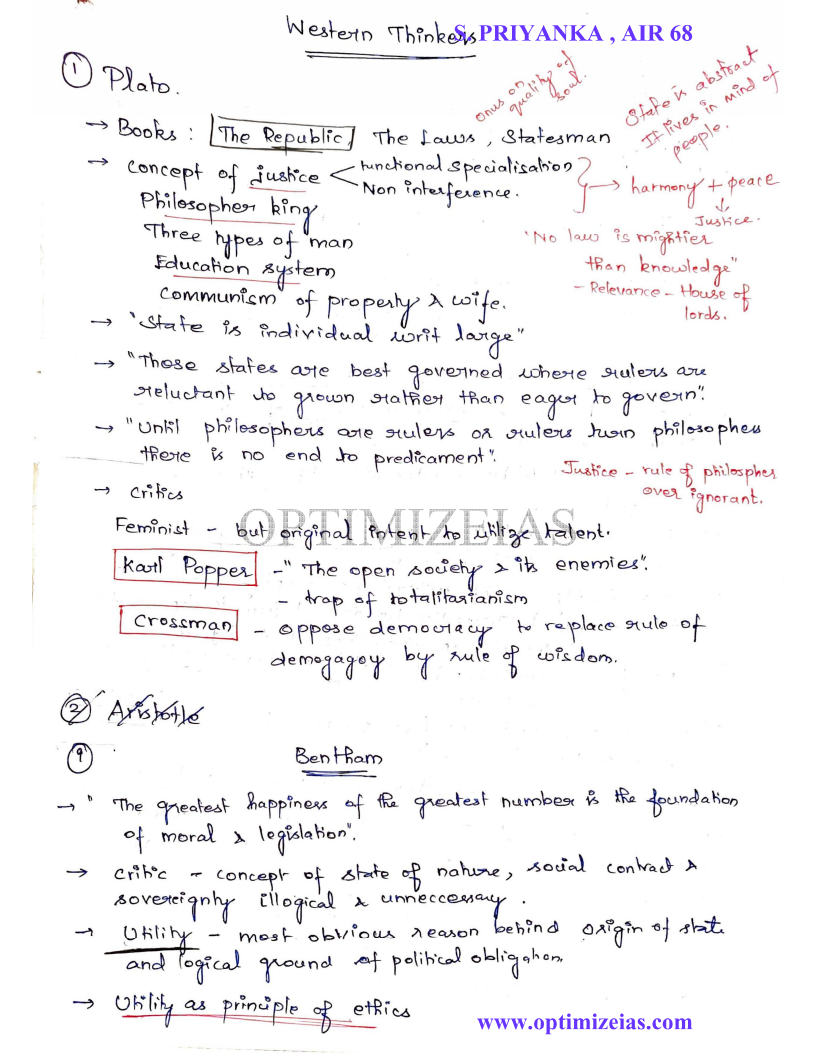 Western Thinkers
S. PRIYANKA , AIR 68
① Plato.
onus on
quality of
soul.
State is abstract
It lives in mind of
people.
→ Books : The Republic, The Laws, Statesman
→ concept of justice < functional specialisation
Non interference.
→ harmony + peace
↓
Justice.
Philosopher king
Three types of man
Education system
communism of property & wife.
"No law is mightier
than knowledge"
- Relevance - House of
lords.
→ "State is individual writ large"
→ "Those states are best governed where rulers are
reluctant to grown rather than eager to govern".
→ "Until philosophers are rulers or rulers turn philosophes
there is no end to predicament".
Justice - rule of philospher
over ignorant.
→ critics
OPTIMIZEIAS
Feminist - but original intent to utilize talent.
Karl Popper - "The open society & its enemies".
- trap of totalitarianism
Crossman - oppose democracy to replace rule of
demogagoy by rule of wisdom.
② Aristotle
⑨ Bentham
→ "The greatest happiness of the greatest number is the foundation
of moral & legislation".
→ critic - concept of state of nature, social contract &
sovereignty illogical & unneccessary .
→ Utility - most obvious reason behind origin of state
and logical ground of political obligation.
→ Utility as principle of ethics
www.optimizeias.com